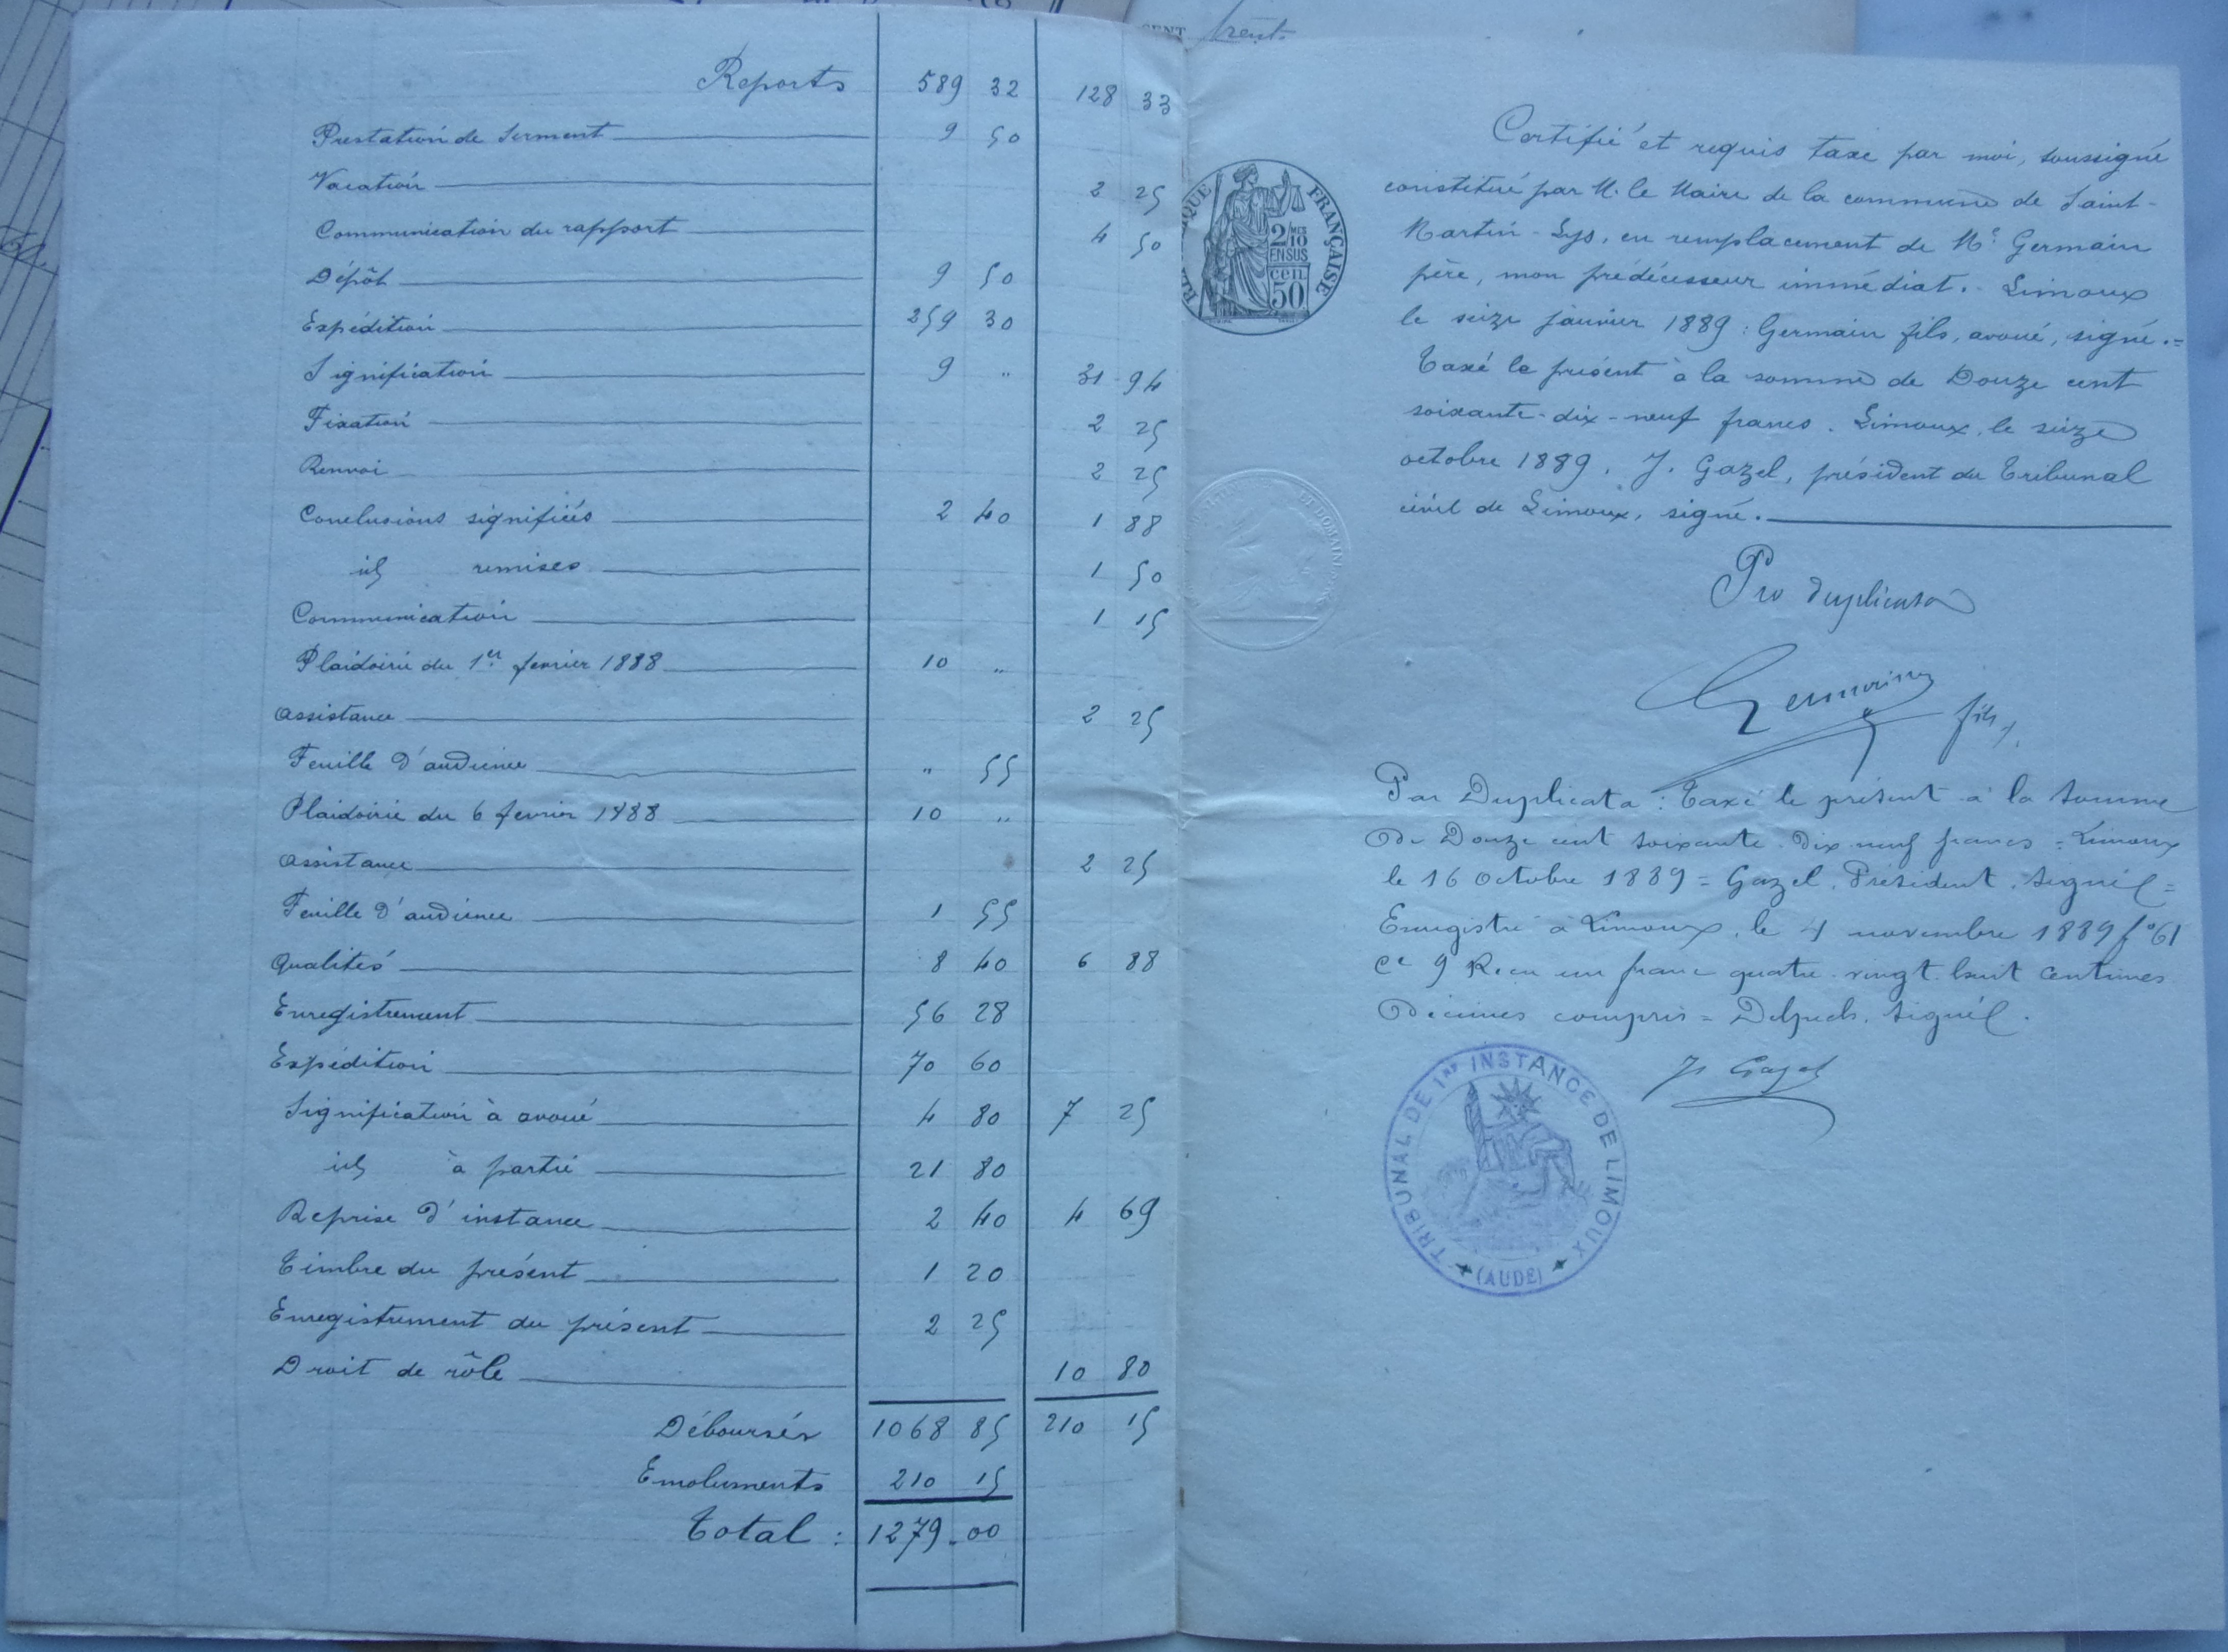 CENT trent
Reports 589 32 128 33
Prestation de serment 9 50
Vacation 2 25
Communication du rapport 4 50
Dépôt 9 50
Expédition 259 30
Signification 9 " 31 94
Fixation 2 25
Renvoi 2 25
Conclusions signifiées 2 40 1 88
id remises 1 50
Communication 1 15
Plaidoirie du 1er fevrier 1888 10 "
Assistance 2 25
Feuille d'audience " 55
Plaidoirie du 6 fevrier 1888 10 "
Assistance 2 25
Feuille d'audience 1 55
Qualités 8 40 6 88
Enregistrement 56 28
Expédition 70 60
Signification à avoué 4 80 7 25
id à partie 21 80
Reprise d'instance 2 40 4 69
Timbre du présent 1 20
Enregistrement du présent 2 25
Droit de rôle 10 80
Déboursés 1068 85 210 15
Emoluments 210 15
Total : 1279.00
Certifié et requis taxe par moi, soussigné
constitué par M. le Maire de la commune de Saint-
Martin-Lys, en remplacement de Me Germain
père, mon prédécesseur immédiat. - Limoux
le seize janvier 1889 : Germain fils, avoué, signé. =
Taxé le présent à la somme de Douze cent
soixante-dix-neuf francs. Limoux, le seize
octobre 1889. J. Gazel, président du Tribunal
civil de Limoux, signé.
Pro duplicata
Germain fils
Par Duplicata : Taxé le présent à la somme
de Douze cent soixante dix neuf francs = Limoux
le 16 Octobre 1889 = Gazel, Président, signé =
Enregistré à Limoux, le 4 novembre 1889 f° 61
Ce 9 Reçu un franc quatre-vingt huit centimes
décimes compris = Delpech, signé.
J. Gazel
RÉPUBLIQUE FRANÇAISE
2/10 MES
EN SUS
50 cen
ET DOMAINE
TRIBUNAL DE 1RE INSTANCE DE LIMOUX
(AUDE)